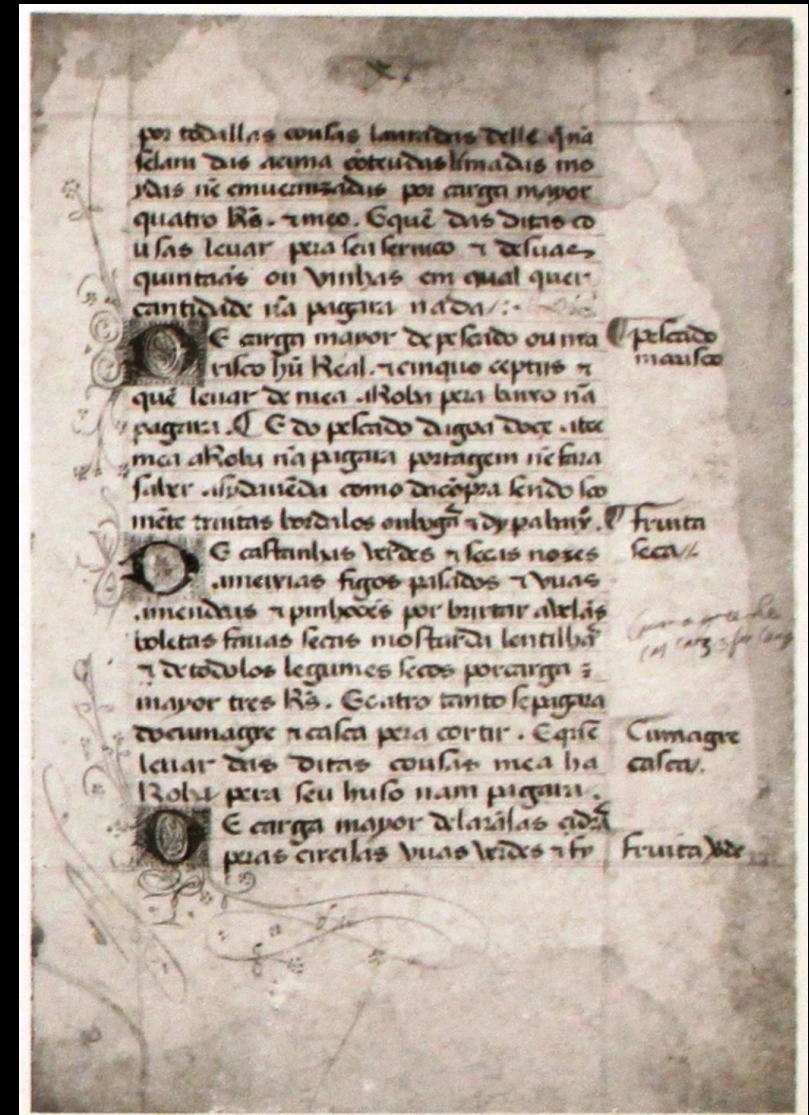 por todallas cousas lauradas delle q̃ nã
seiam das acima cõteudas limadas mo
ydas nẽ emuernizadas por carga mayor
quatro Rs̃. ⁊ meo. E quẽ das ditas co
usas leuar pera seu seruico ⁊ de suas
quintaãs ou vinhas em qual quer
cantidade nã pagara nada /:
DE carga mayor de pescado ou ma
risco hũ Real. ⁊ cinquo ceptijs ⁊
quẽ leuar de mea aRoba pera baixo nã
pagara. ¶ E do pescado dagoa doce atee
mea aRoba nã pagara portagem nẽ fara
saber asy da vẽda como da cõpra sendo soo
mẽte truitas bordalos
DE castanhas verdes ⁊ secas nozes
ameixias figos pasados ⁊ vuas
amendoas ⁊ pinhoões por britar avelãs
boletas fauas secas mostarda lentilhã
⁊ de todolos legumes secos por carga :
mayor tres Rs̃. E outro tanto se pagara
do cumagre ⁊ casca pera cortir. E quẽ
leuar das ditas cousas mea ha
Roba pera seu huso nam pagara.
DE carga mayor de larãias cidrã
peras cireijas vuas verdes ⁊ fy
¶ pescado
marisco
¶ fruita
seca/.
Cumagre
casca/.
fruita vde